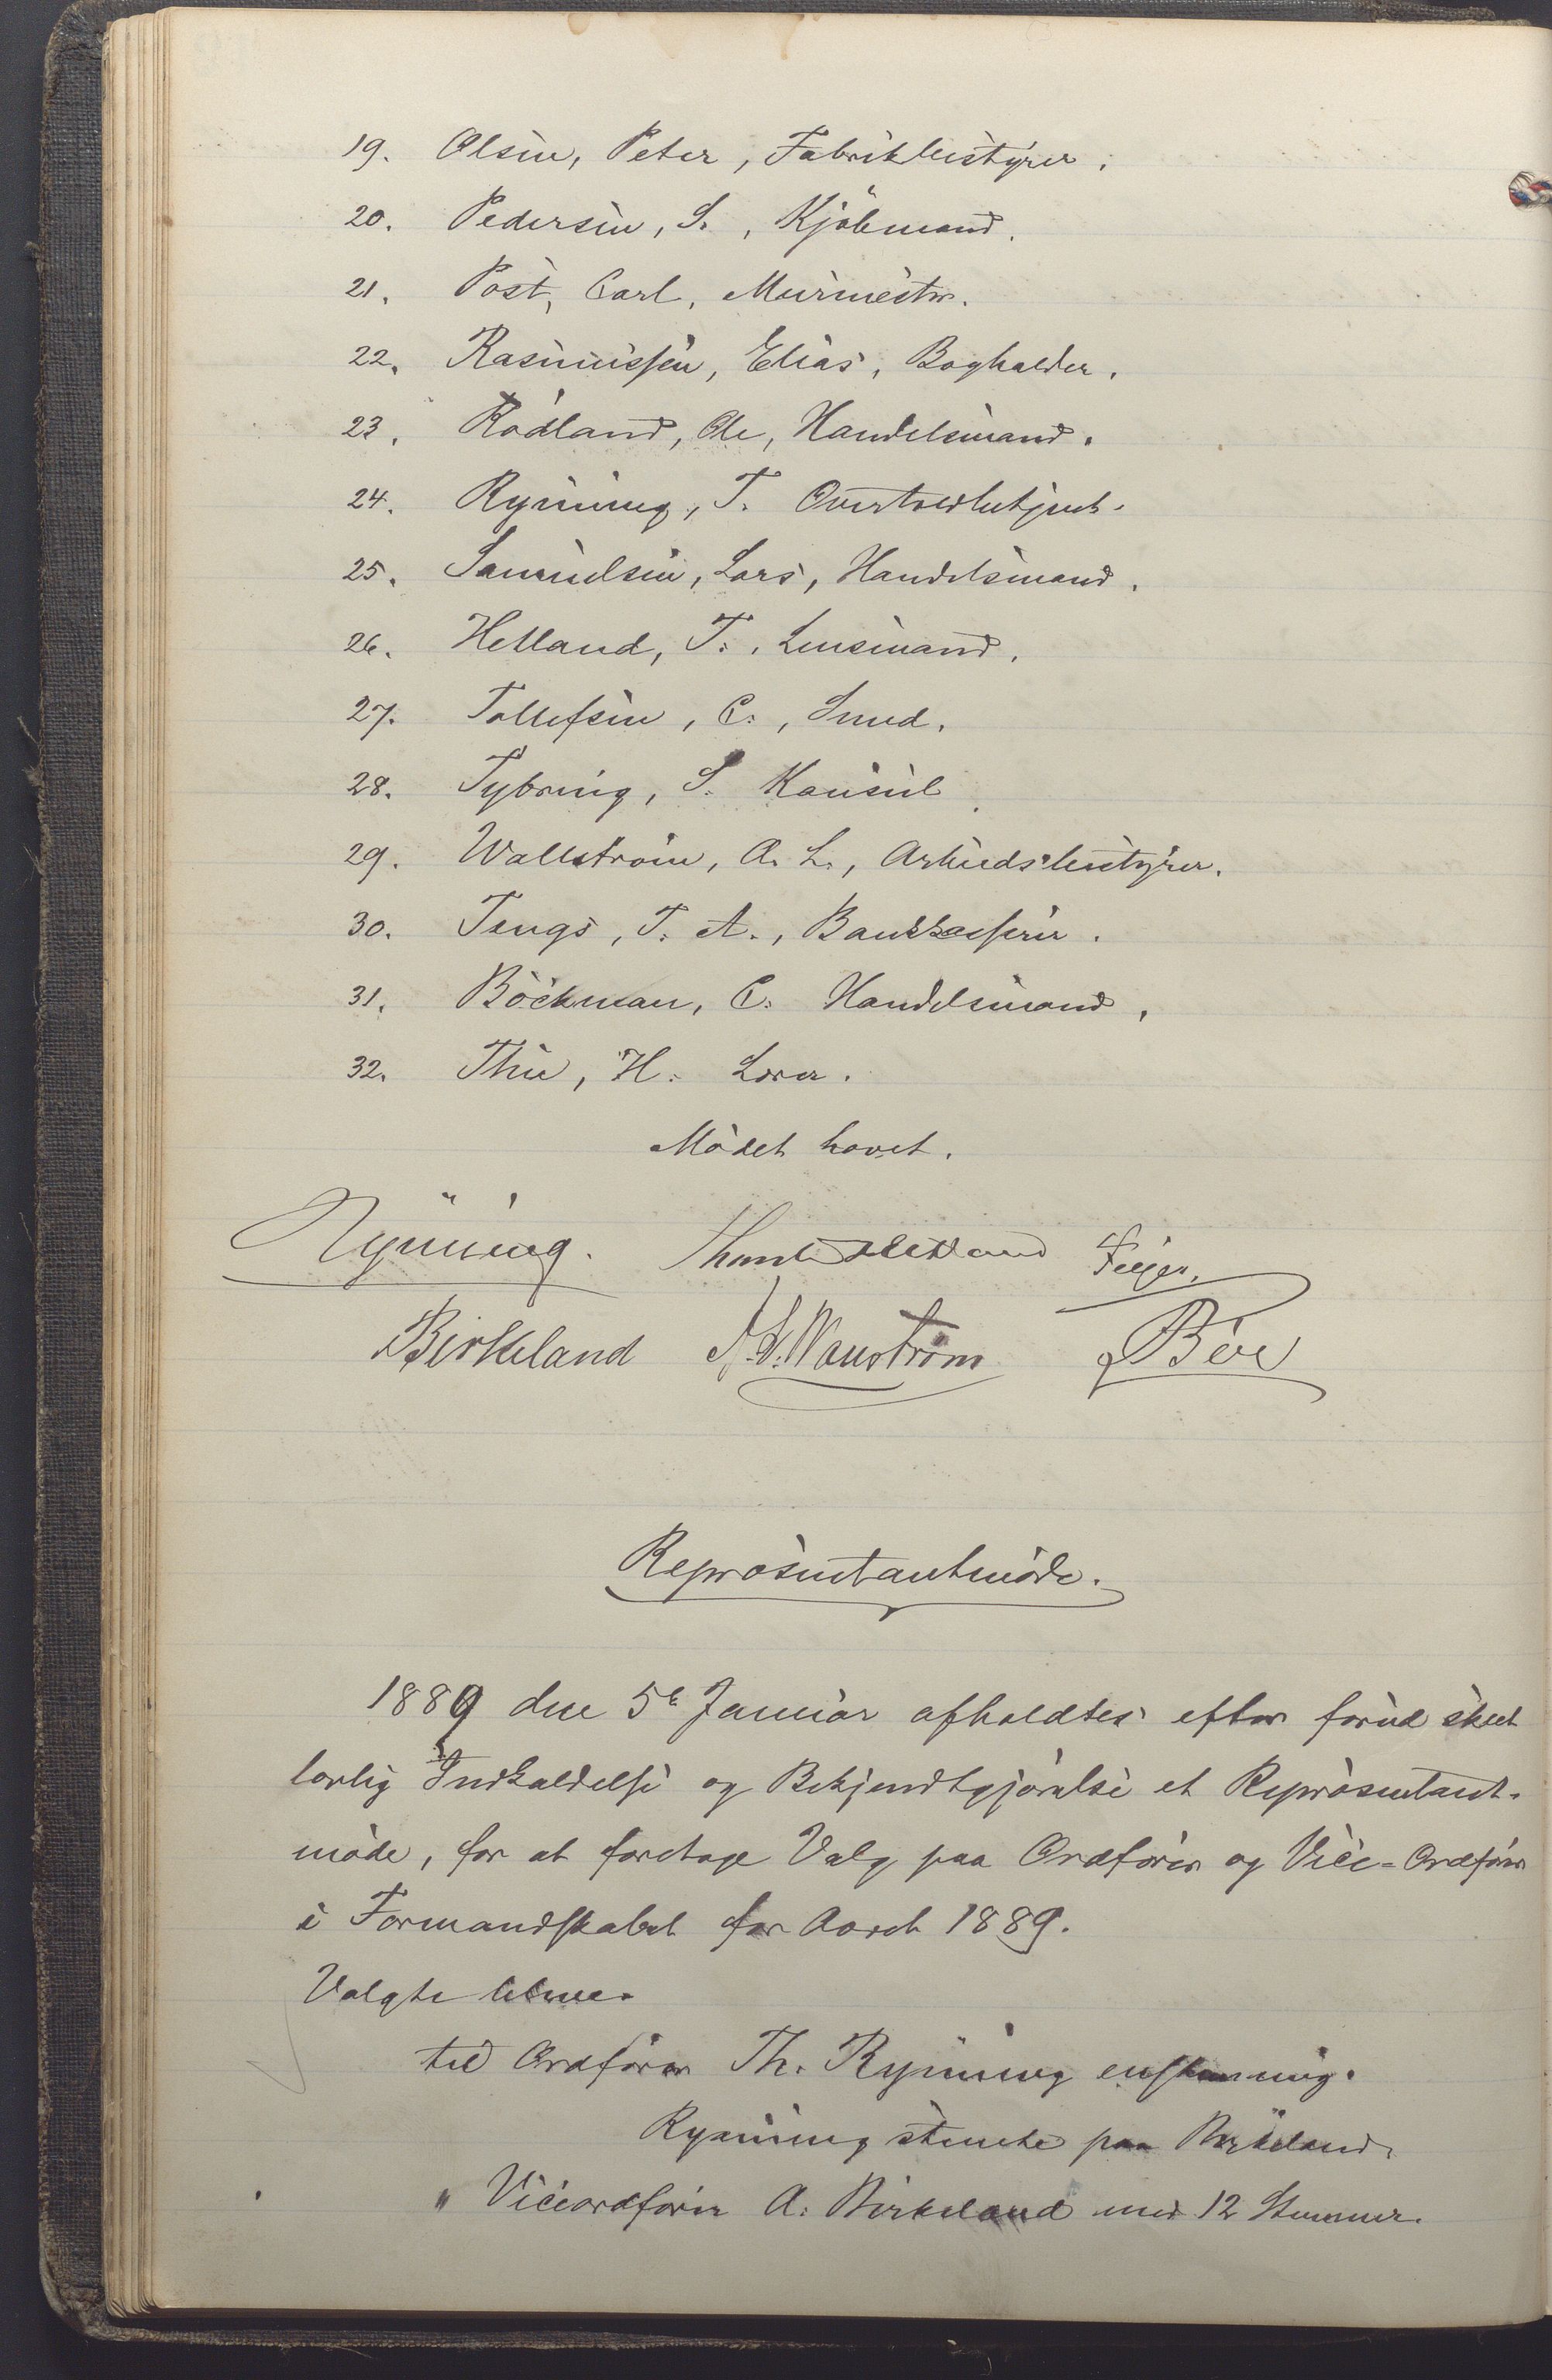 19. Olsen, Peter, Fabrikbestyrer.
20. Pedersen, S., Kjöbmand.
21. Post, Carl, Murmester.
22. Rasmussen, Elias, Bogholder.
23. Rödland, Ole, Handelsmand.
24. Rynning, T. Overtoldbetjent.
25. Samuelsen, Lars, Handelsmand.
26. Hetland, T., Lensmand.
27. Tollefsen, C., Smed.
28. Tybring, S. Konsul.
29. Wallström, A. L., Arbeidsbestyrer.
30. Tengs, T. A., Bankkasserer.
31. Böckman, C. Handelsmand,
32. Thu, H. Lærer.
Mödet hævet.
Rynning. Hetland Feyer.
Birkeland A. L. Wallström Böe
Repræsentantmöde.
1889 den 5te Januar afholdtes efter forud skeet
lovlig Indkaldelse og Bekjendtgjörelse et Repræsentant-
möde, for at foretage Valg paa Ordförer og Vice-Ordförer
i Formandskabet for Aaret 1889.
Valgte bleve.
til Ordförer Th. Rynning enstemmig.
Rynning stemte paa Birkeland.
" Viceordförer A. Birkeland med 12 Stemmer.